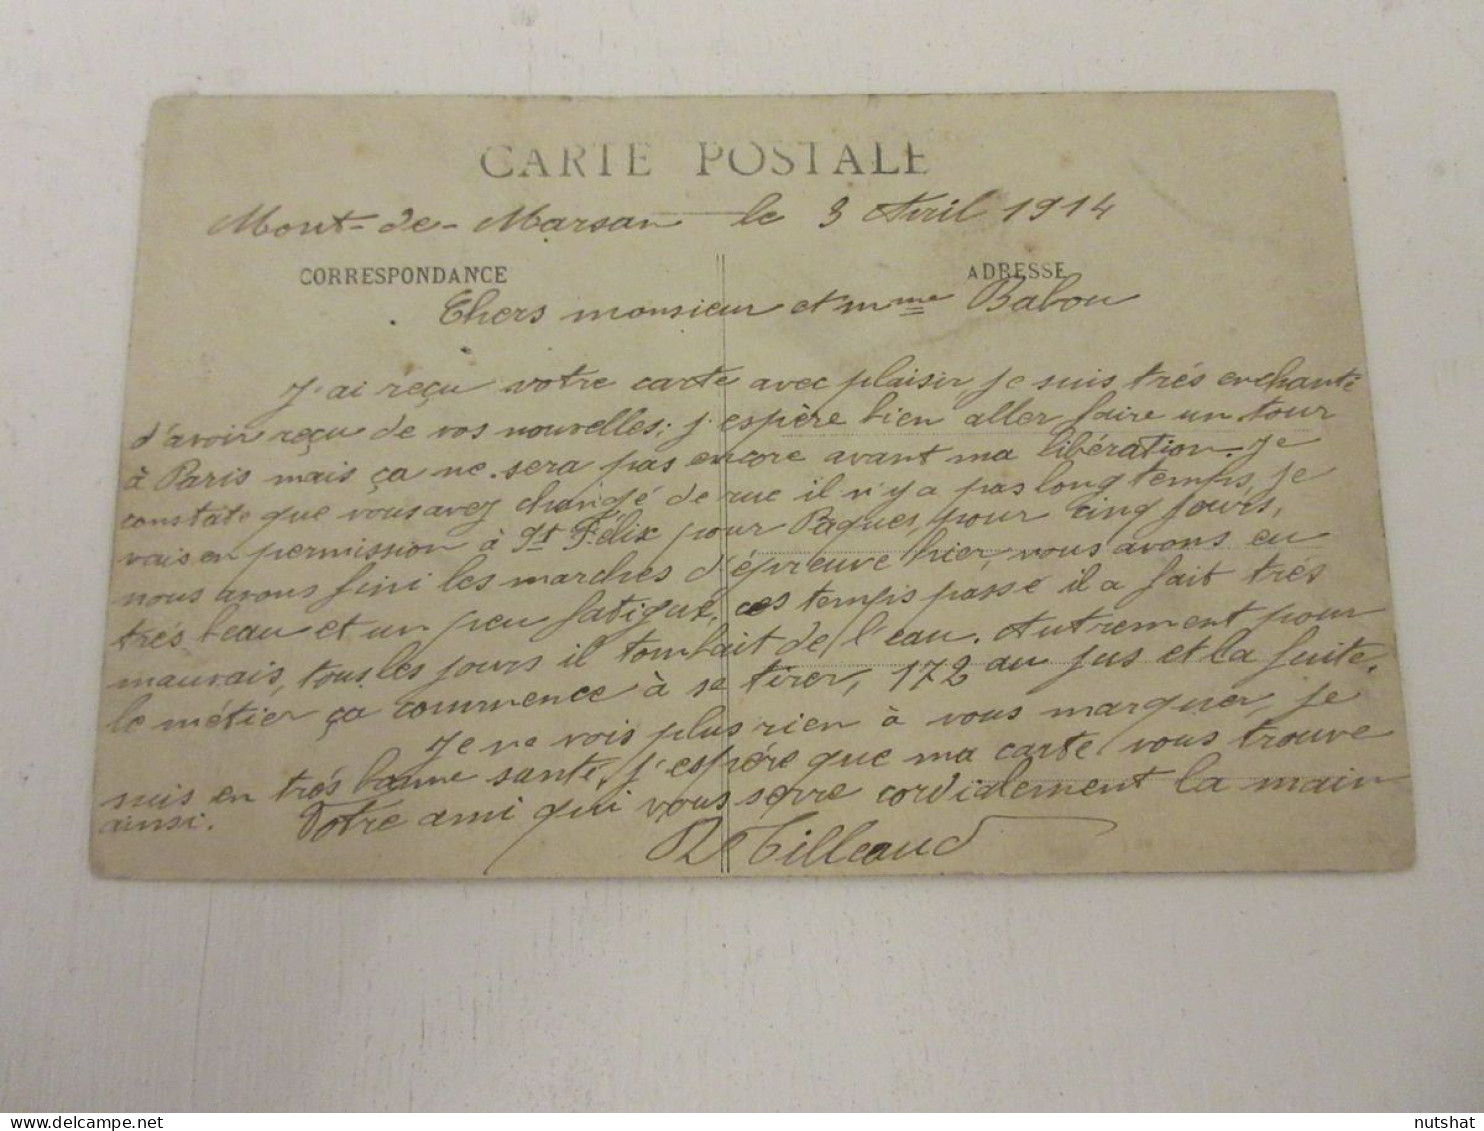 CARTE POSTALE
Mont-de-Marsan le 3 Avril 1914
CORRESPONDANCE ADRESSE
Chers monsieur et mme Babou
J'ai reçu votre carte avec plaisir je suis trés enchanté
d'avoir reçu de vos nouvelles; j'espère bien aller faire un tour
à Paris mais ça ne sera pas encore avant ma libération. Je
constate que vous avez changé de rue il n'y a pas longtemps, je
vais en permission à St Félix pour Paques, pour cinq jours,
nous avons fini les marches d'épreuve hier, nous avons eu
trés beau et un peu fatigué, ces temps passé il a fait trés
mauvais, tous les jours il tombait de l'eau. Autrement pour
le métier ça commence à se tirer, 172 au jus et la fuite.
Je ne vois plus rien à vous marquer, je
suis en trés bonne santé, j'espére que ma carte vous trouve
ainsi. Votre ami qui vous serre cordialement la main
R Tilleaud
nutshat